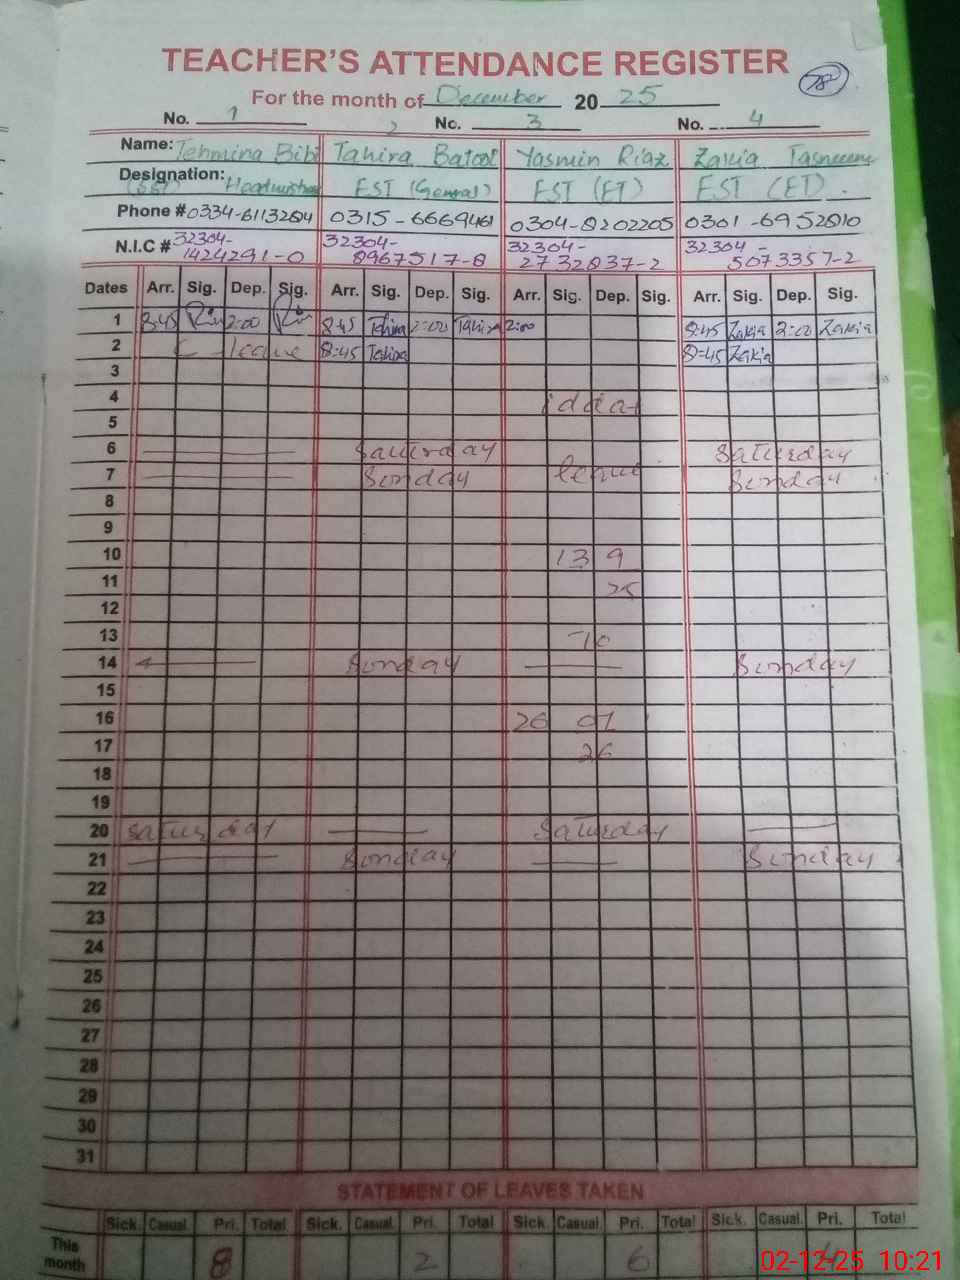 TEACHER'S ATTENDANCE REGISTER
78
For the month of December 2025
No. 1 2 No. 3 No. 4
Name: Tehmina Bibi Tahira Batool Yasmin Riaz Zakia Tasneem
Designation: (SST) Headmistress EST (General) EST (ET) EST (ET).
Phone # 0334-6113284 0315-6669461 0304-8202205 0301-6952810
N.I.C # 32304- 32304- 32304- 32304-
1424291-0 8967517-8 2732837-2 5073357-2
Dates Arr. Sig. Dep. Sig. Arr. Sig. Dep. Sig. Arr. Sig. Dep. Sig. Arr. Sig. Dep. Sig.
1 8:45 2:00 8:45 Tahira 2:00 Tahira 2:00 8:45 Zakia 2:00 Zakia
2 C - leave 8:45 Tahira 8:45 Zakia
3
4 iddat
5
6 Saturday Saturday
7 Sunday leave Sunday
8
9
10 13 9
11 25
12
13 To
14 Sunday Sunday
15
16 20 01
17 26
18
19
20 Saturday Saturday
21 Sunday Sunday
22
23
24
25
26
27
28
29
30
31
STATEMENT OF LEAVES TAKEN
Sick. Casual. Pri. Total Sick. Casual. Pri. Total Sick. Casual. Pri. Total Sick. Casual. Pri. Total
This month 8 2 6
02-12-25 10:21